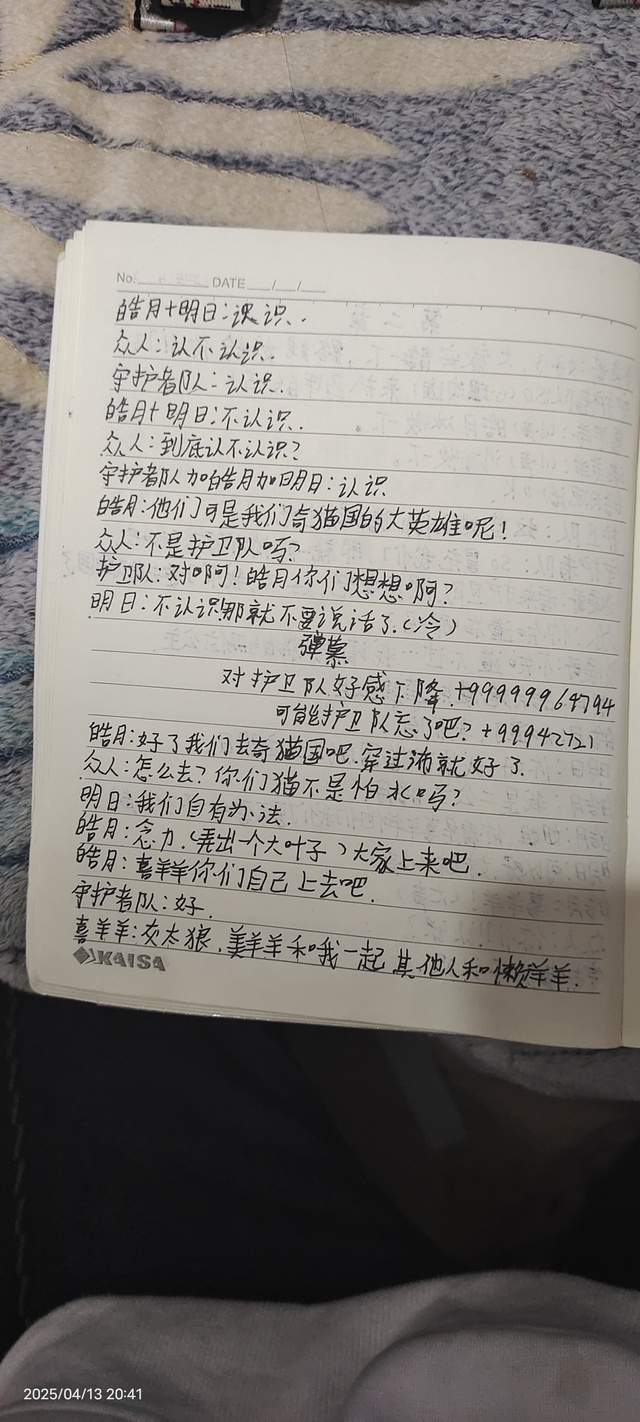 No. DATE / /
皓月+明日:认识.
众人:认不认识.
守护者队:认识.
皓月+明日:不认识.
众人:到底认不认识?
守护者队加皓月加明日:认识
皓月:他们可是我们奇猫国的大英雄呢!
众人:不是护卫队吗?
护卫队:对啊!皓月你们想想啊?
明日:不认识那就不要说话了.(冷)
弹幕
对护卫队好感下降.+99999964794
可能护卫队忘了吧?+99942721
皓月:好了我们去奇猫国吧.穿过海就好了.
众人:怎么去?你们猫不是怕水吗?
明日:我们自有办法.
皓月:念力.(弄出一个大叶子)大家上来吧.
皓月:喜羊羊你们自己上去吧.
守护者队:好.
喜羊羊:灰太狼.美羊羊和我一起 其他人和懒羊羊.
KAISA
2025/04/13 20:41